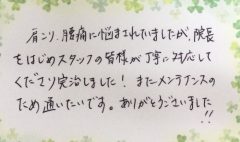 肩こり、腰痛に悩まされていましたが、院長
をはじめスタッフの皆様が丁寧に対応して
くださり完治しました！またメンテナンスの
ため通いたいです。ありがとうございました!!